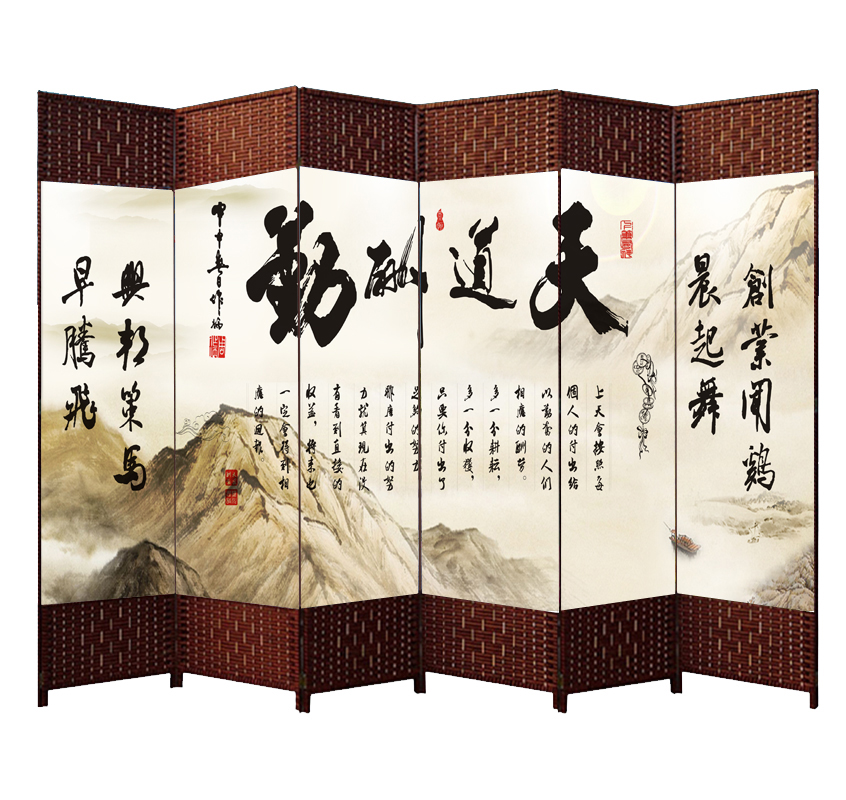 創業聞鷄
晨起舞
天道酬勤
上天會按照每
個人的付出給
以勤奮的人们
相應的酬劳。
多一分耕耘，
多一分收穫，
只要你付出了
足够的努力
付出的努
力就算現在沒
有看到直接的
收益，將來也
一定會得到相
應的回报
興邦策馬
早騰飛